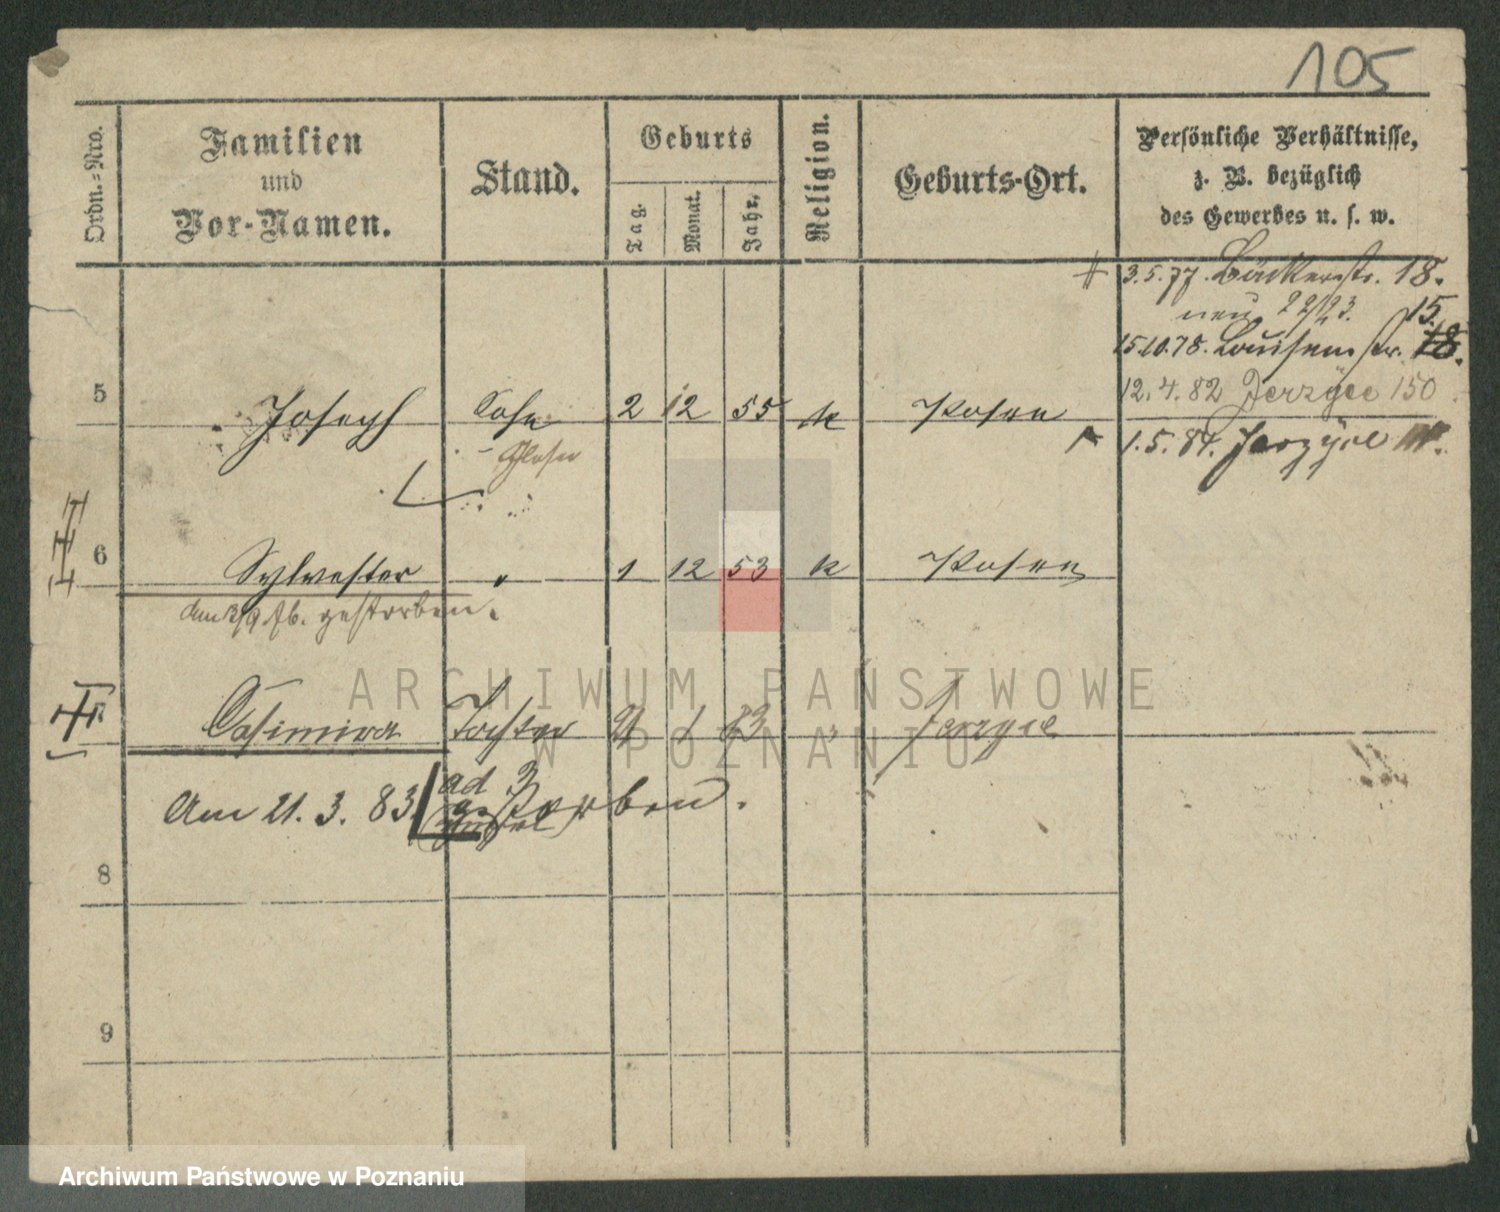 105
Ordn.-Nro.
Familien
und
Vor-Namen.
Stand.
Geburts
Tag.
Monat.
Jahr.
Religion.
Geburts-Ort.
Persönliche Verhältnisse,
z. B. bezüglich
des Gewerbes u. s. w.
3.5.77. Bäckerstr. 18.
neu 22/23. 15.
15.10.78. Louisenstr. 18.
12.4.82 Jerzyce 150
5 Joseph Sohn 2 12 55 k Posen
1.5.84. Jerzyce
6 Sylvester " 1 12 53 k Posen
gestorben.
Casimira Tochter 1 83 " Jerzyce
ad 3
Am 21.3.83. gestorben.
8
9
ARCHIWUM PAŃSTWOWE
W POZNANIU
Archiwum Państwowe w Poznaniu